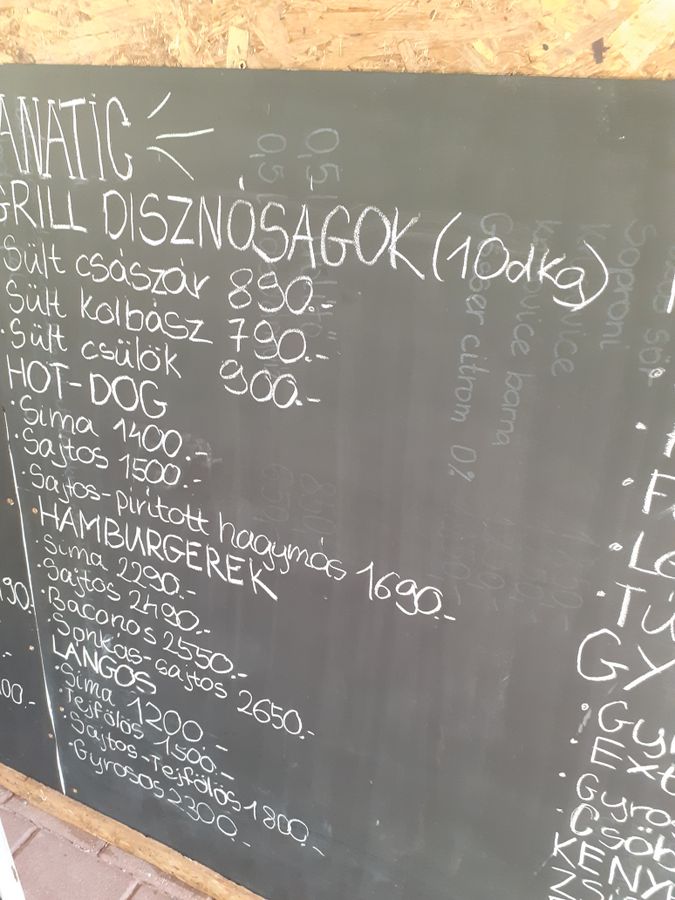 ANATIC
GRILL DISZNÓSÁGOK (10dkg)
Sült császár 890.-
Sült kolbász 790.-
Sült csülök 900.-
HOT-DOG
Sima 1400.-
Sajtos 1500.-
Sajtos-pirított hagymás 1690.-
HAMBURGEREK
Sima 2290.-
Sajtos 2490.-
Baconos 2550.-
Sonkás-sajtos 2650.-
LÁNGOS
Sima 1200.-
Tejfölös 1500.-
Sajtos-Tejfölös 1800.-
Gyrosos 2300.-
190.
00.-
GY
Gyr
Ext
Gyros
Csöb
KENY
Soproni
citrom 0%
barna
0,5
0,5